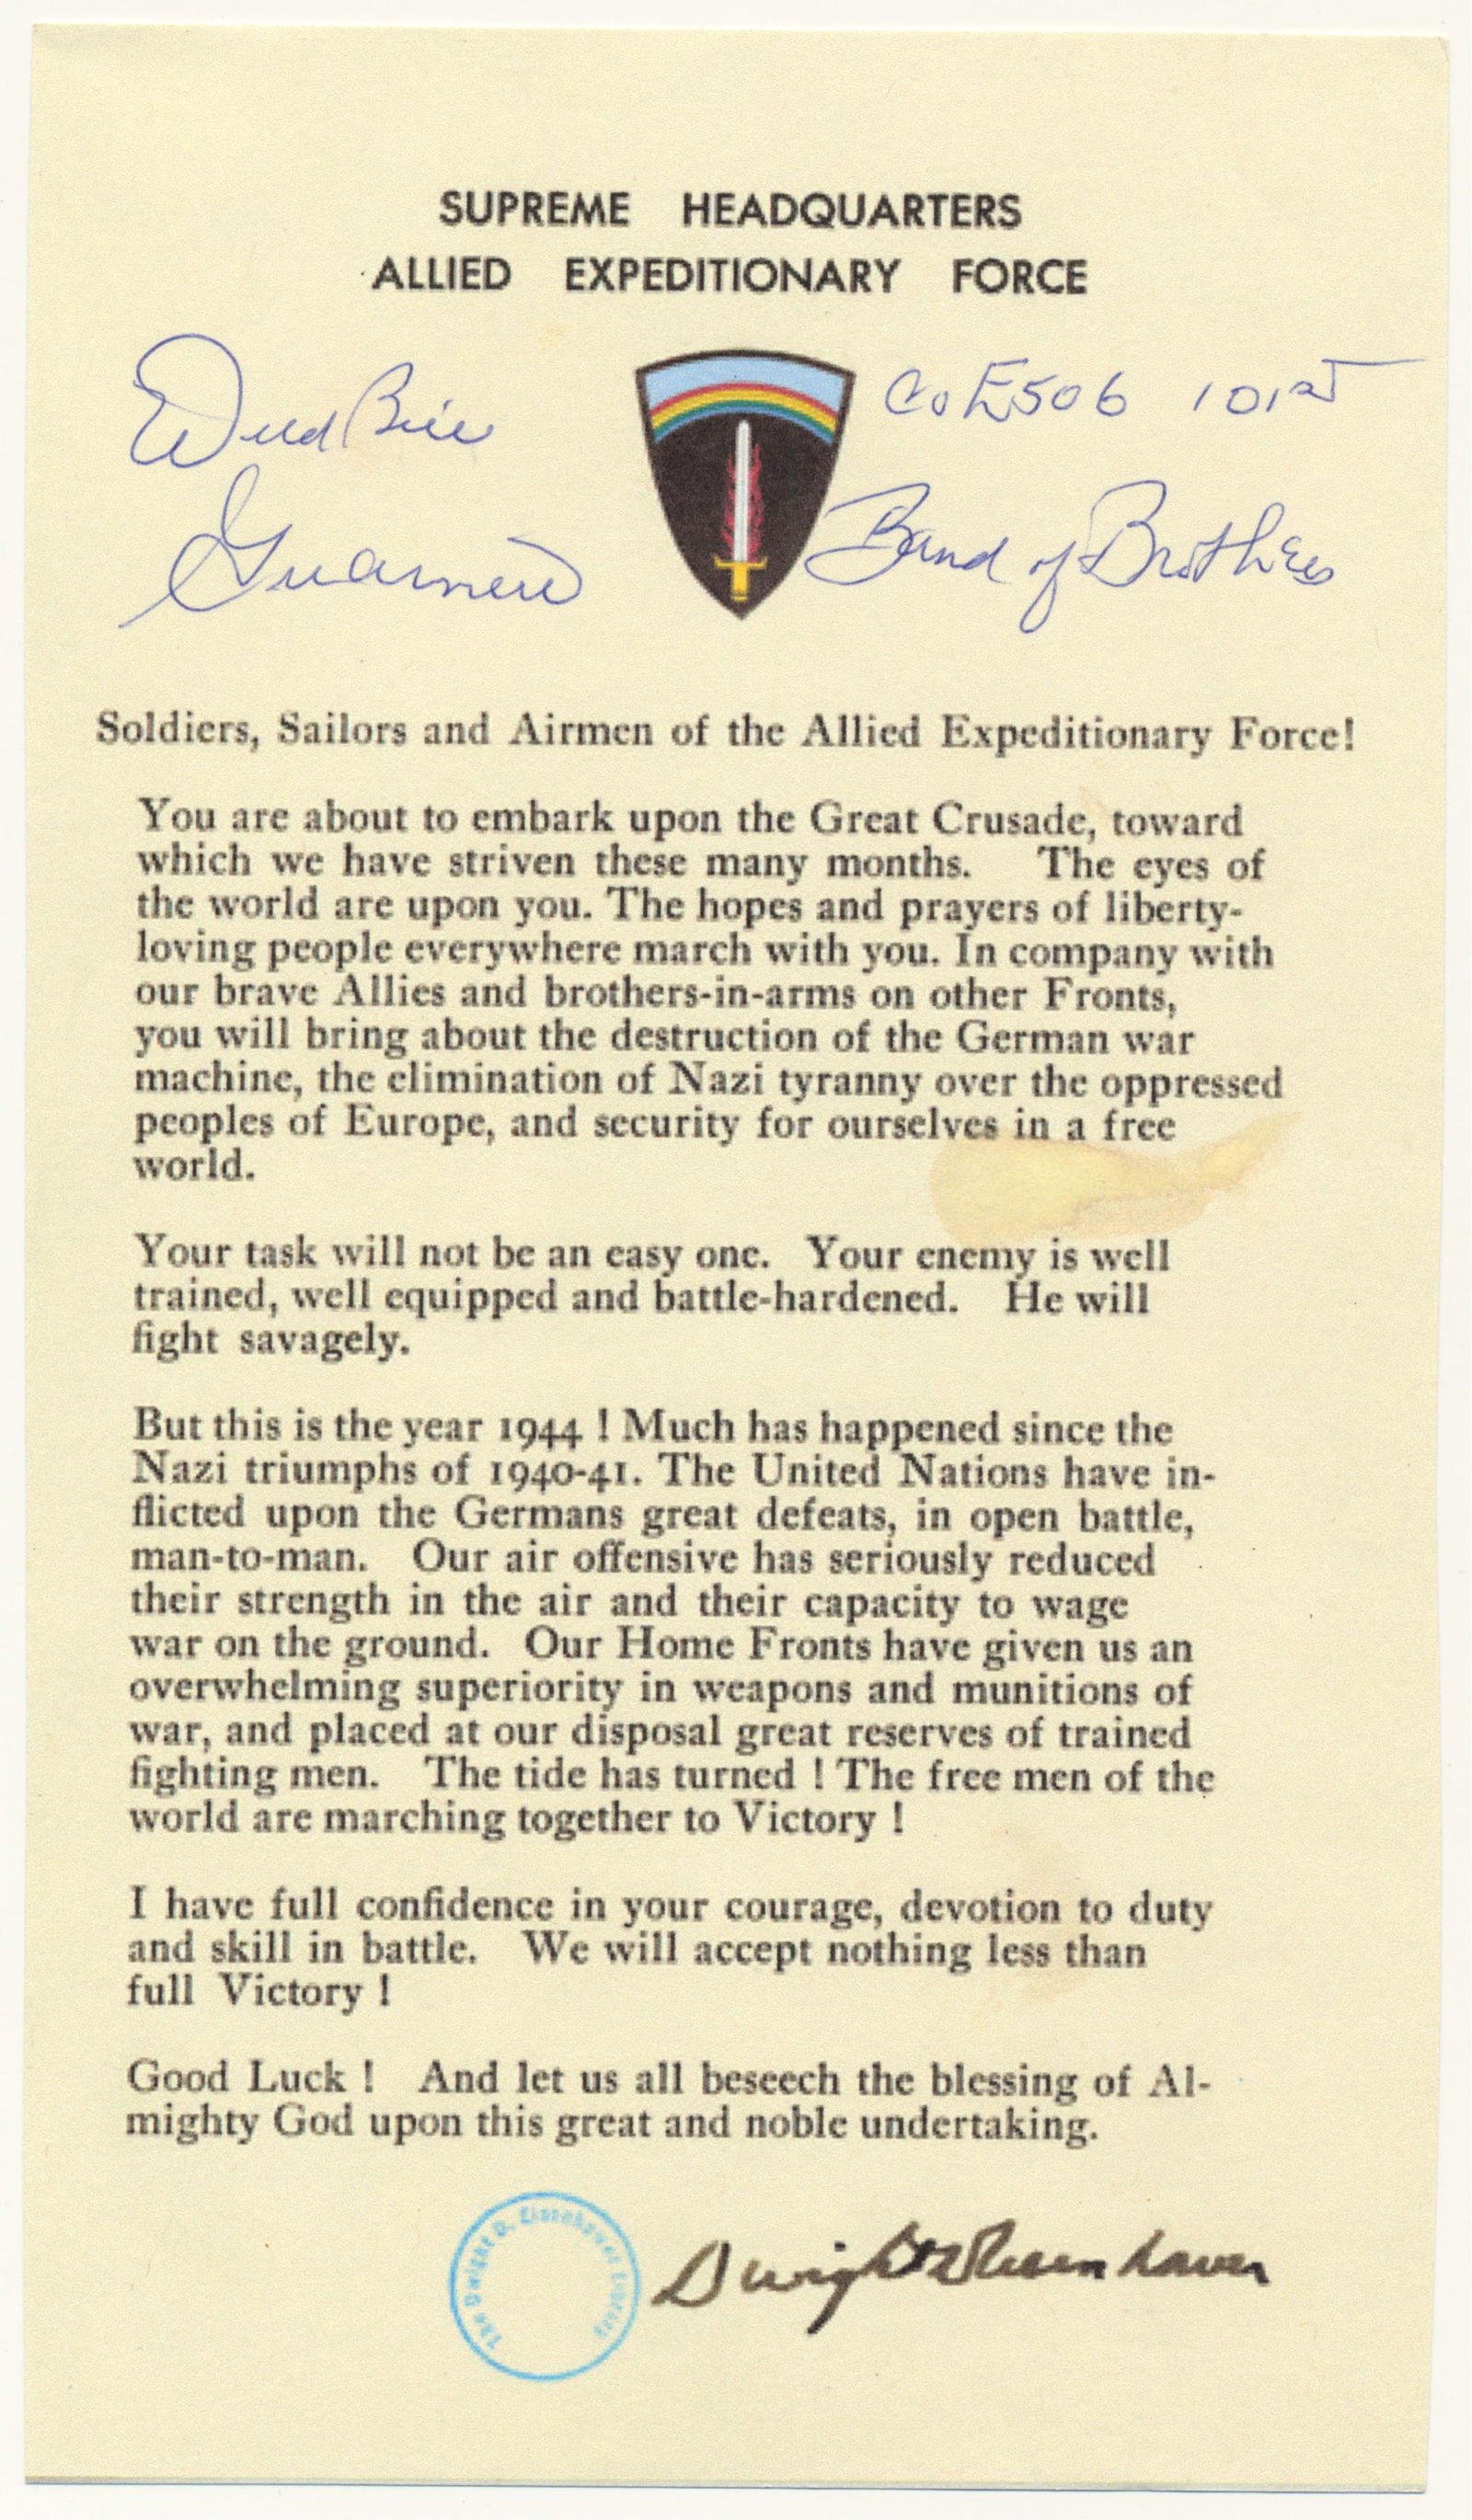 SUPREME HEADQUARTERS
ALLIED EXPEDITIONARY FORCE
Wild Bill
Guarnere
Co E 506 101st
Band of Brothers
Soldiers, Sailors and Airmen of the Allied Expeditionary Force!
You are about to embark upon the Great Crusade, toward
which we have striven these many months. The eyes of
the world are upon you. The hopes and prayers of liberty-
loving people everywhere march with you. In company with
our brave Allies and brothers-in-arms on other Fronts,
you will bring about the destruction of the German war
machine, the elimination of Nazi tyranny over the oppressed
peoples of Europe, and security for ourselves in a free
world.
Your task will not be an easy one. Your enemy is well
trained, well equipped and battle-hardened. He will
fight savagely.
But this is the year 1944 ! Much has happened since the
Nazi triumphs of 1940-41. The United Nations have in-
flicted upon the Germans great defeats, in open battle,
man-to-man. Our air offensive has seriously reduced
their strength in the air and their capacity to wage
war on the ground. Our Home Fronts have given us an
overwhelming superiority in weapons and munitions of
war, and placed at our disposal great reserves of trained
fighting men. The tide has turned ! The free men of the
world are marching together to Victory !
I have full confidence in your courage, devotion to duty
and skill in battle. We will accept nothing less than
full Victory !
Good Luck ! And let us all beseech the blessing of Al-
mighty God upon this great and noble undertaking.
The Dwight D. Eisenhower Library
Dwight D Eisenhower